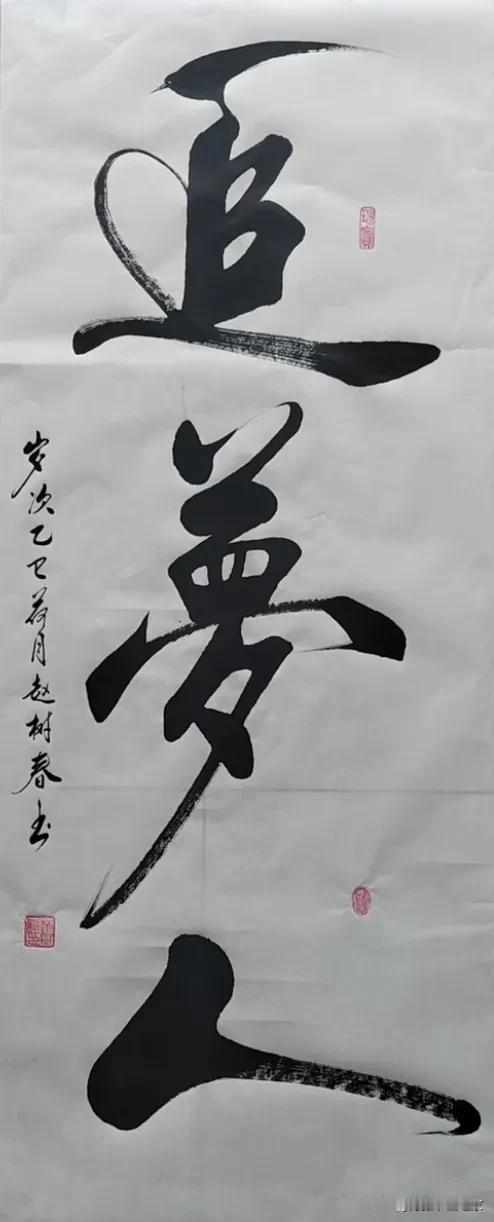 追夢人
岁次乙巳荷月赵树春书